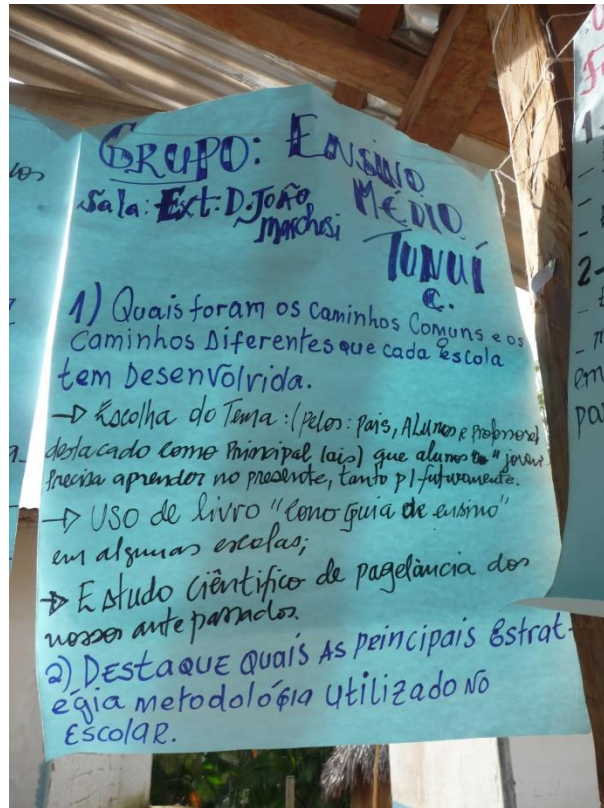 GRUPO: ENSINO
MÉDIO
Sala: Ext: D. JoÃo
Marchesi
TUNUÍ
C.
1) Quais foram os caminhos Comuns e os
Caminhos Diferentes que cada escola
tem Desenvolvida.
→ Escolha do Tema: (pelos: pais, Alunos e Professores)
destacado como Principal (ais) que alunos "jovens
Precisa aprender no presente, tanto p/ futuramente.
→ USO de livro "como guia de ensino"
em algumas escolas;
→ Estudo Ciêntifico de pagelância dos
nossos antepassados.
2) Destaque quais As principais Estrat-
égia metodológia utilizado no
Escolar.
1
2-
em
pa